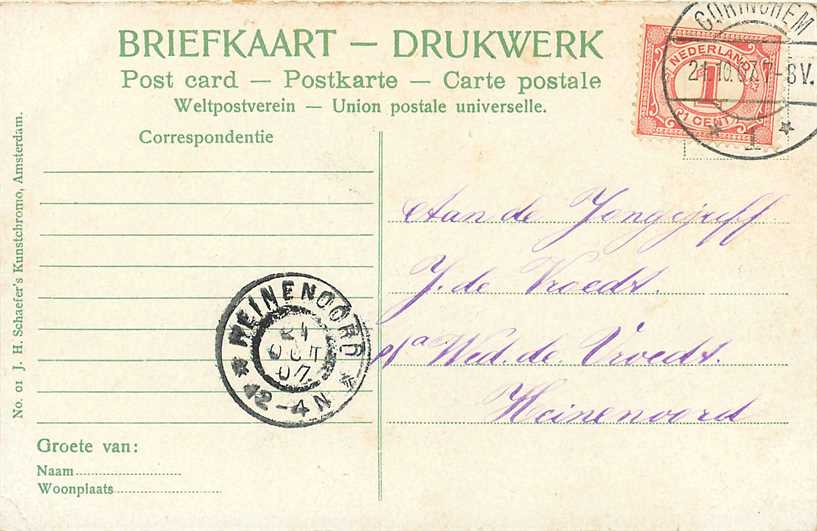 BRIEFKAART — DRUKWERK
Post card — Postkarte — Carte postale
Weltpostverein — Union postale universelle.
Correspondentie
GORINCHEM
21.10.07.7-8V.
* 1 *
NEDERLAND
1
1 CENT
Aan de Jongejuff
J. de Vroedt.
p/a Wed. de Vroedt.
Heinenoord
HEINENOORD
21
OCT
07
* 12-4N *
Groete van:
Naam
Woonplaats
No. 01 J. H. Schaefer's Kunstchromo, Amsterdam.